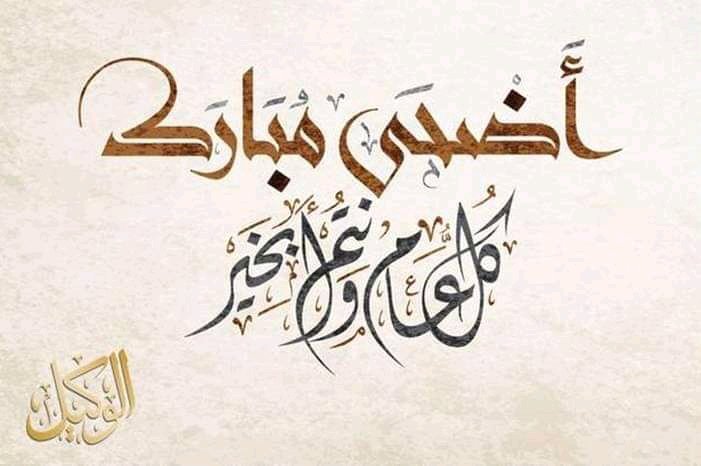 أَضْحَى مُبَارَك
كُل عَام وَأنتُم بخَير
الوكيل